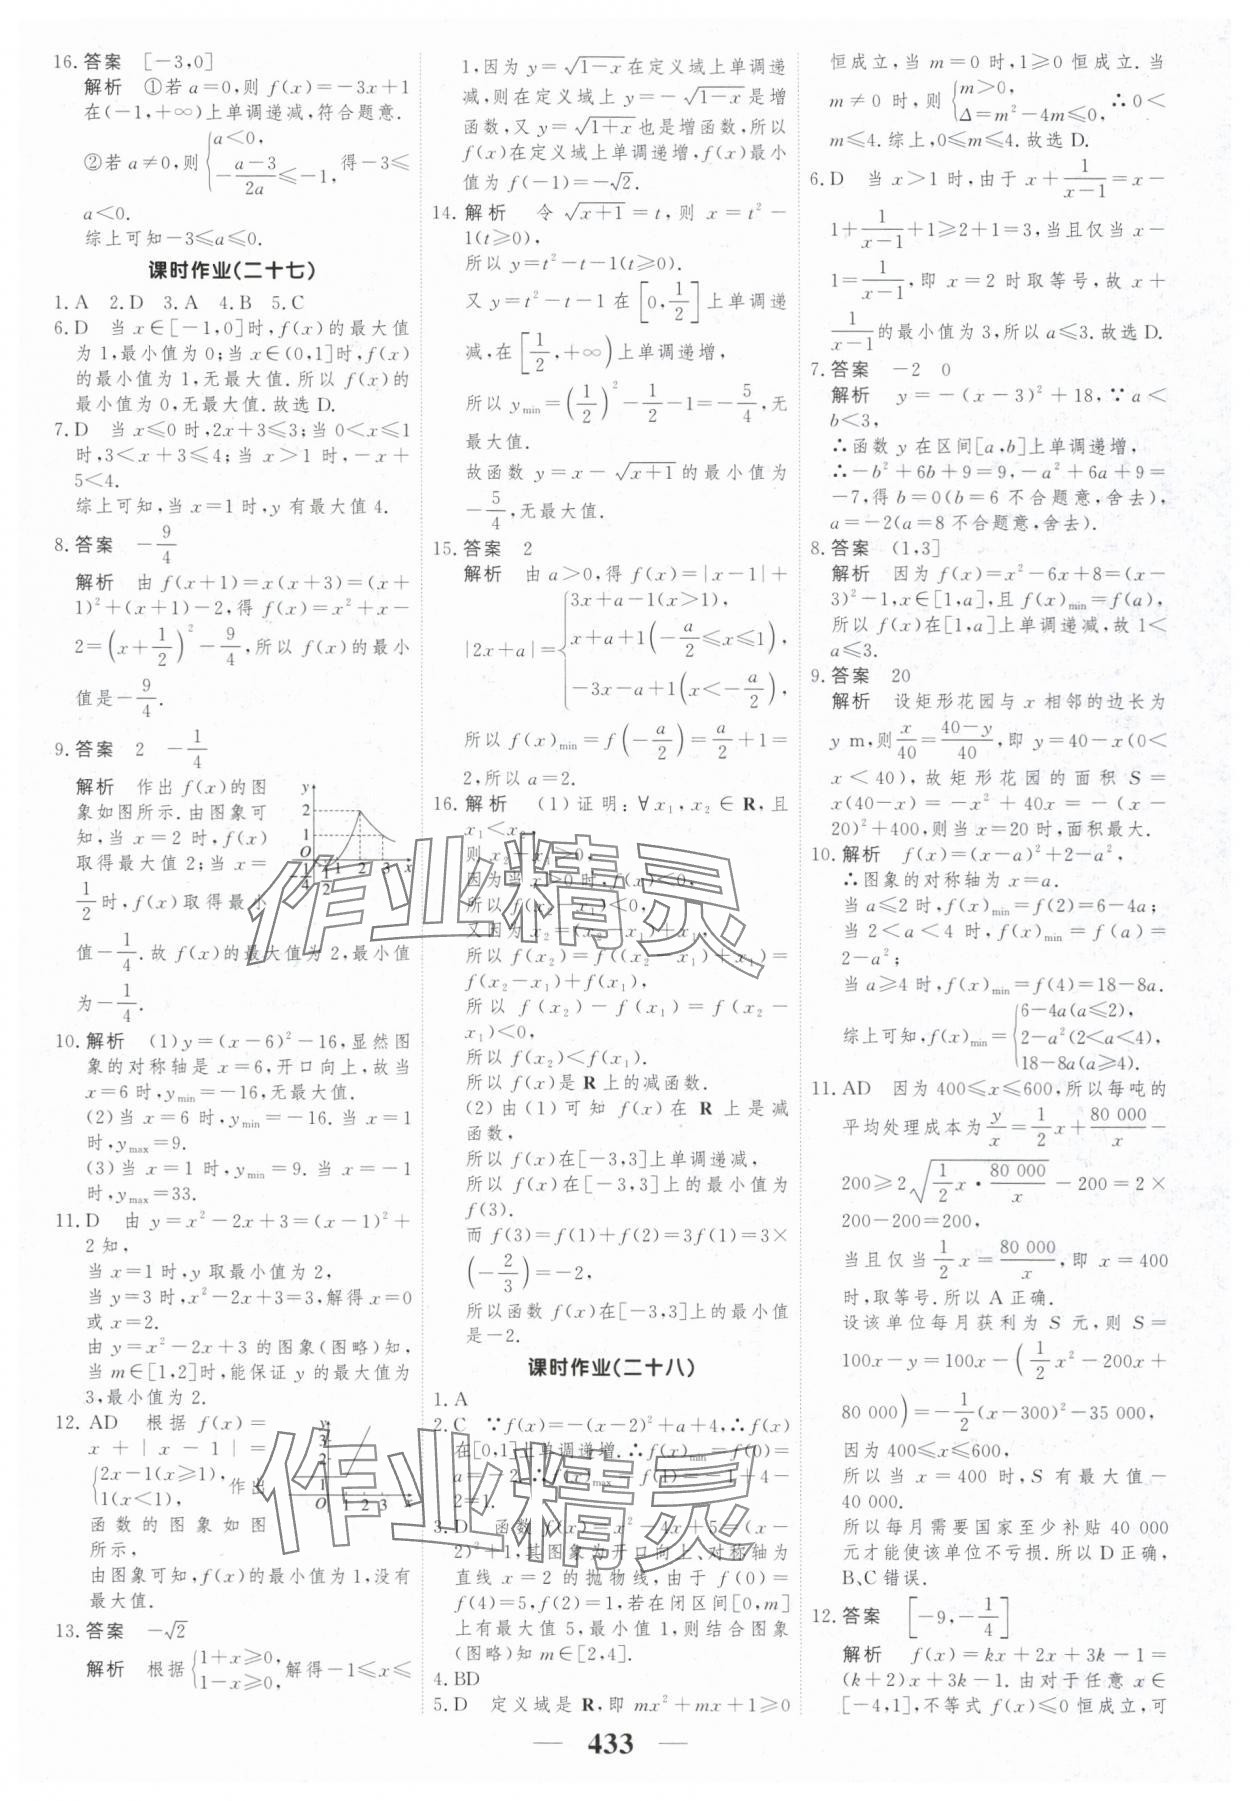 16.答案 [-3,0]
解析 ①若 a=0,则 f(x)=-3x+1
在(-1,+∞)上单调递减,符合题意.
②若 a≠0,则{a<0, -(a-3)/(2a)≤-1, 得-3≤
a<0.
综上可知-3≤a≤0.
课时作业(二十七)
1.A 2.D 3.A 4.B 5.C
6.D 当 x∈[-1,0]时,f(x)的最大值
为 1,最小值为 0;当 x∈(0,1]时,f(x)
的最小值为 1,无最大值.所以 f(x)的
最小值为 0,无最大值.故选 D.
7.D 当 x≤0 时,2x+3≤3;当 0<x≤1
时,3<x+3≤4;当 x>1 时,-x+
5<4.
综上可知,当 x=1 时,y 有最大值 4.
8.答案 -9/4
解析 由 f(x+1)=x(x+3)=(x+
1)²+(x+1)-2,得 f(x)=x²+x-
2=(x+1/2)²-9/4,所以 f(x)的最小
值是-9/4.
9.答案 2 -1/4
解析 作出 f(x)的图
象如图所示.由图象可
知,当 x=2 时,f(x)
取得最大值 2;当 x=
1/2时,f(x)取得最小
值-1/4.故 f(x)的最大值为 2,最小值
为-1/4.
10.解析 (1)y=(x-6)²-16,显然图
象的对称轴是 x=6,开口向上,故当
x=6 时,y_min=-16,无最大值.
(2)当 x=6 时,y_min=-16.当 x=1
时,y_max=9.
(3)当 x=1 时,y_min=9.当 x=-1
时,y_max=33.
11.D 由 y=x²-2x+3=(x-1)²+
2 知,
当 x=1 时,y 取最小值为 2,
当 y=3 时,x²-2x+3=3,解得 x=0
或 x=2.
由 y=x²-2x+3 的图象(图略)知,
当 m∈[1,2]时,能保证 y 的最大值为
3,最小值为 2.
12.AD 根据 f(x)=
x+|x-1|=
{2x-1(x≥1), 1(x<1), 作出
函数的图象如图
所示,
由图象可知,f(x)的最小值为 1,没有
最大值.
13.答案 -√2
解析 根据{1+x≥0, 1-x≥0, 解得-1≤x≤
1,因为 y=√(1-x)在定义域上单调递
减,则在定义域上 y=-√(1-x)是增
函数,又 y=√(1+x)也是增函数,所以
f(x)在定义域上单调递增,f(x)最小
值为 f(-1)=-√2.
14.解析 令√(x+1)=t,则 x=t²-
1(t≥0),
所以 y=t²-t-1(t≥0).
又 y=t²-t-1 在[0,1/2]上单调递
减,在[1/2,+∞)上单调递增,
所以 y_min=(1/2)²-1/2-1=-5/4,无
最大值.
故函数 y=x-√(x+1)的最小值为
-5/4,无最大值.
15.答案 2
解析 由 a>0,得 f(x)=|x-1|+
|2x+a|={3x+a-1(x>1), x+a+1(-a/2≤x≤1), -3x-a+1(x<-a/2),
所以 f(x)_min=f(-a/2)=a/2+1=
2,所以 a=2.
16.解析 (1)证明:∀x₁,x₂∈R,且
x₁<x₂,
则 x₂-x₁>0,
因为当 x>0 时,f(x)<0,
所以 f(x₂-x₁)<0,
又因为 x₂=(x₂-x₁)+x₁,
所以 f(x₂)=f((x₂-x₁)+x₁)=
f(x₂-x₁)+f(x₁),
所以 f(x₂)-f(x₁)=f(x₂-
x₁)<0,
所以 f(x₂)<f(x₁).
所以 f(x)是 R 上的减函数.
(2)由(1)可知 f(x)在 R 上是减
函数,
所以 f(x)在[-3,3]上单调递减,
所以 f(x)在[-3,3]上的最小值为
f(3).
而 f(3)=f(1)+f(2)=3f(1)=3×
(-2/3)=-2,
所以函数 f(x)在[-3,3]上的最小值
是-2.
课时作业(二十八)
1.A
2.C ∵f(x)=-(x-2)²+a+4,∴f(x)
在[0,1]上单调递增.∴f(x)_min=f(0)=
a=-2,∴f(x)_max=f(1)=-1+4-
2=1.
3.D 函数 f(x)=x²-4x+5=(x-
2)²+1,其图象为开口向上、对称轴为
直线 x=2 的抛物线,由于 f(0)=
f(4)=5,f(2)=1,若在闭区间[0,m]
上有最大值 5,最小值 1,则结合图象
(图略)知 m∈[2,4].
4.BD
5.D 定义域是 R,即 mx²+mx+1≥0
恒成立,当 m=0 时,1≥0 恒成立.当
m≠0 时,则{m>0, Δ=m²-4m≤0, ∴0<
m≤4.综上,0≤m≤4.故选 D.
6.D 当 x>1 时,由于 x+1/(x-1)=x-
1+1/(x-1)+1≥2+1=3,当且仅当 x-
1=1/(x-1),即 x=2 时取等号,故 x+
1/(x-1)的最小值为 3,所以 a≤3.故选 D.
7.答案 -2 0
解析 y=-(x-3)²+18,∵a<
b<3,
∴函数 y 在区间[a,b]上单调递增,
∴-b²+6b+9=9,-a²+6a+9=
-7,得 b=0(b=6 不合题意,舍去),
a=-2(a=8 不合题意,舍去).
8.答案 (1,3]
解析 因为 f(x)=x²-6x+8=(x-
3)²-1,x∈[1,a],且 f(x)_min=f(a),
所以 f(x)在[1,a]上单调递减,故 1<
a≤3.
9.答案 20
解析 设矩形花园与 x 相邻的边长为
y m,则x/40=(40-y)/40,即 y=40-x(0<
x<40),故矩形花园的面积 S=
x(40-x)=-x²+40x=-(x-
20)²+400,则当 x=20 时,面积最大.
10.解析 f(x)=(x-a)²+2-a²,
∴图象的对称轴为 x=a.
当 a≤2 时,f(x)_min=f(2)=6-4a;
当 2<a<4 时,f(x)_min=f(a)=
2-a²;
当 a≥4 时,f(x)_min=f(4)=18-8a.
综上可知,f(x)_min={6-4a(a≤2), 2-a²(2<a<4), 18-8a(a≥4).
11.AD 因为 400≤x≤600,所以每吨的
平均处理成本为y/x=1/2x+80 000/x-
200≥2√(1/2x·80 000/x)-200=2×
200-200=200,
当且仅当1/2x=80 000/x,即 x=400
时,取等号.所以 A 正确.
设该单位每月获利为 S 元,则 S=
100x-y=100x-(1/2x²-200x+
80 000)=-1/2(x-300)²-35 000,
因为 400≤x≤600,
所以当 x=400 时,S 有最大值-
40 000.
所以每月需要国家至少补贴 40 000
元才能使该单位不亏损.所以 D 正确,
B、C 错误.
12.答案 [-9,-1/4]
解析 f(x)=kx+2x+3k-1=
(k+2)x+3k-1.由对于任意 x∈
[-4,1],不等式 f(x)≤0 恒成立,可
— 433 —
作业精灵
作业精灵